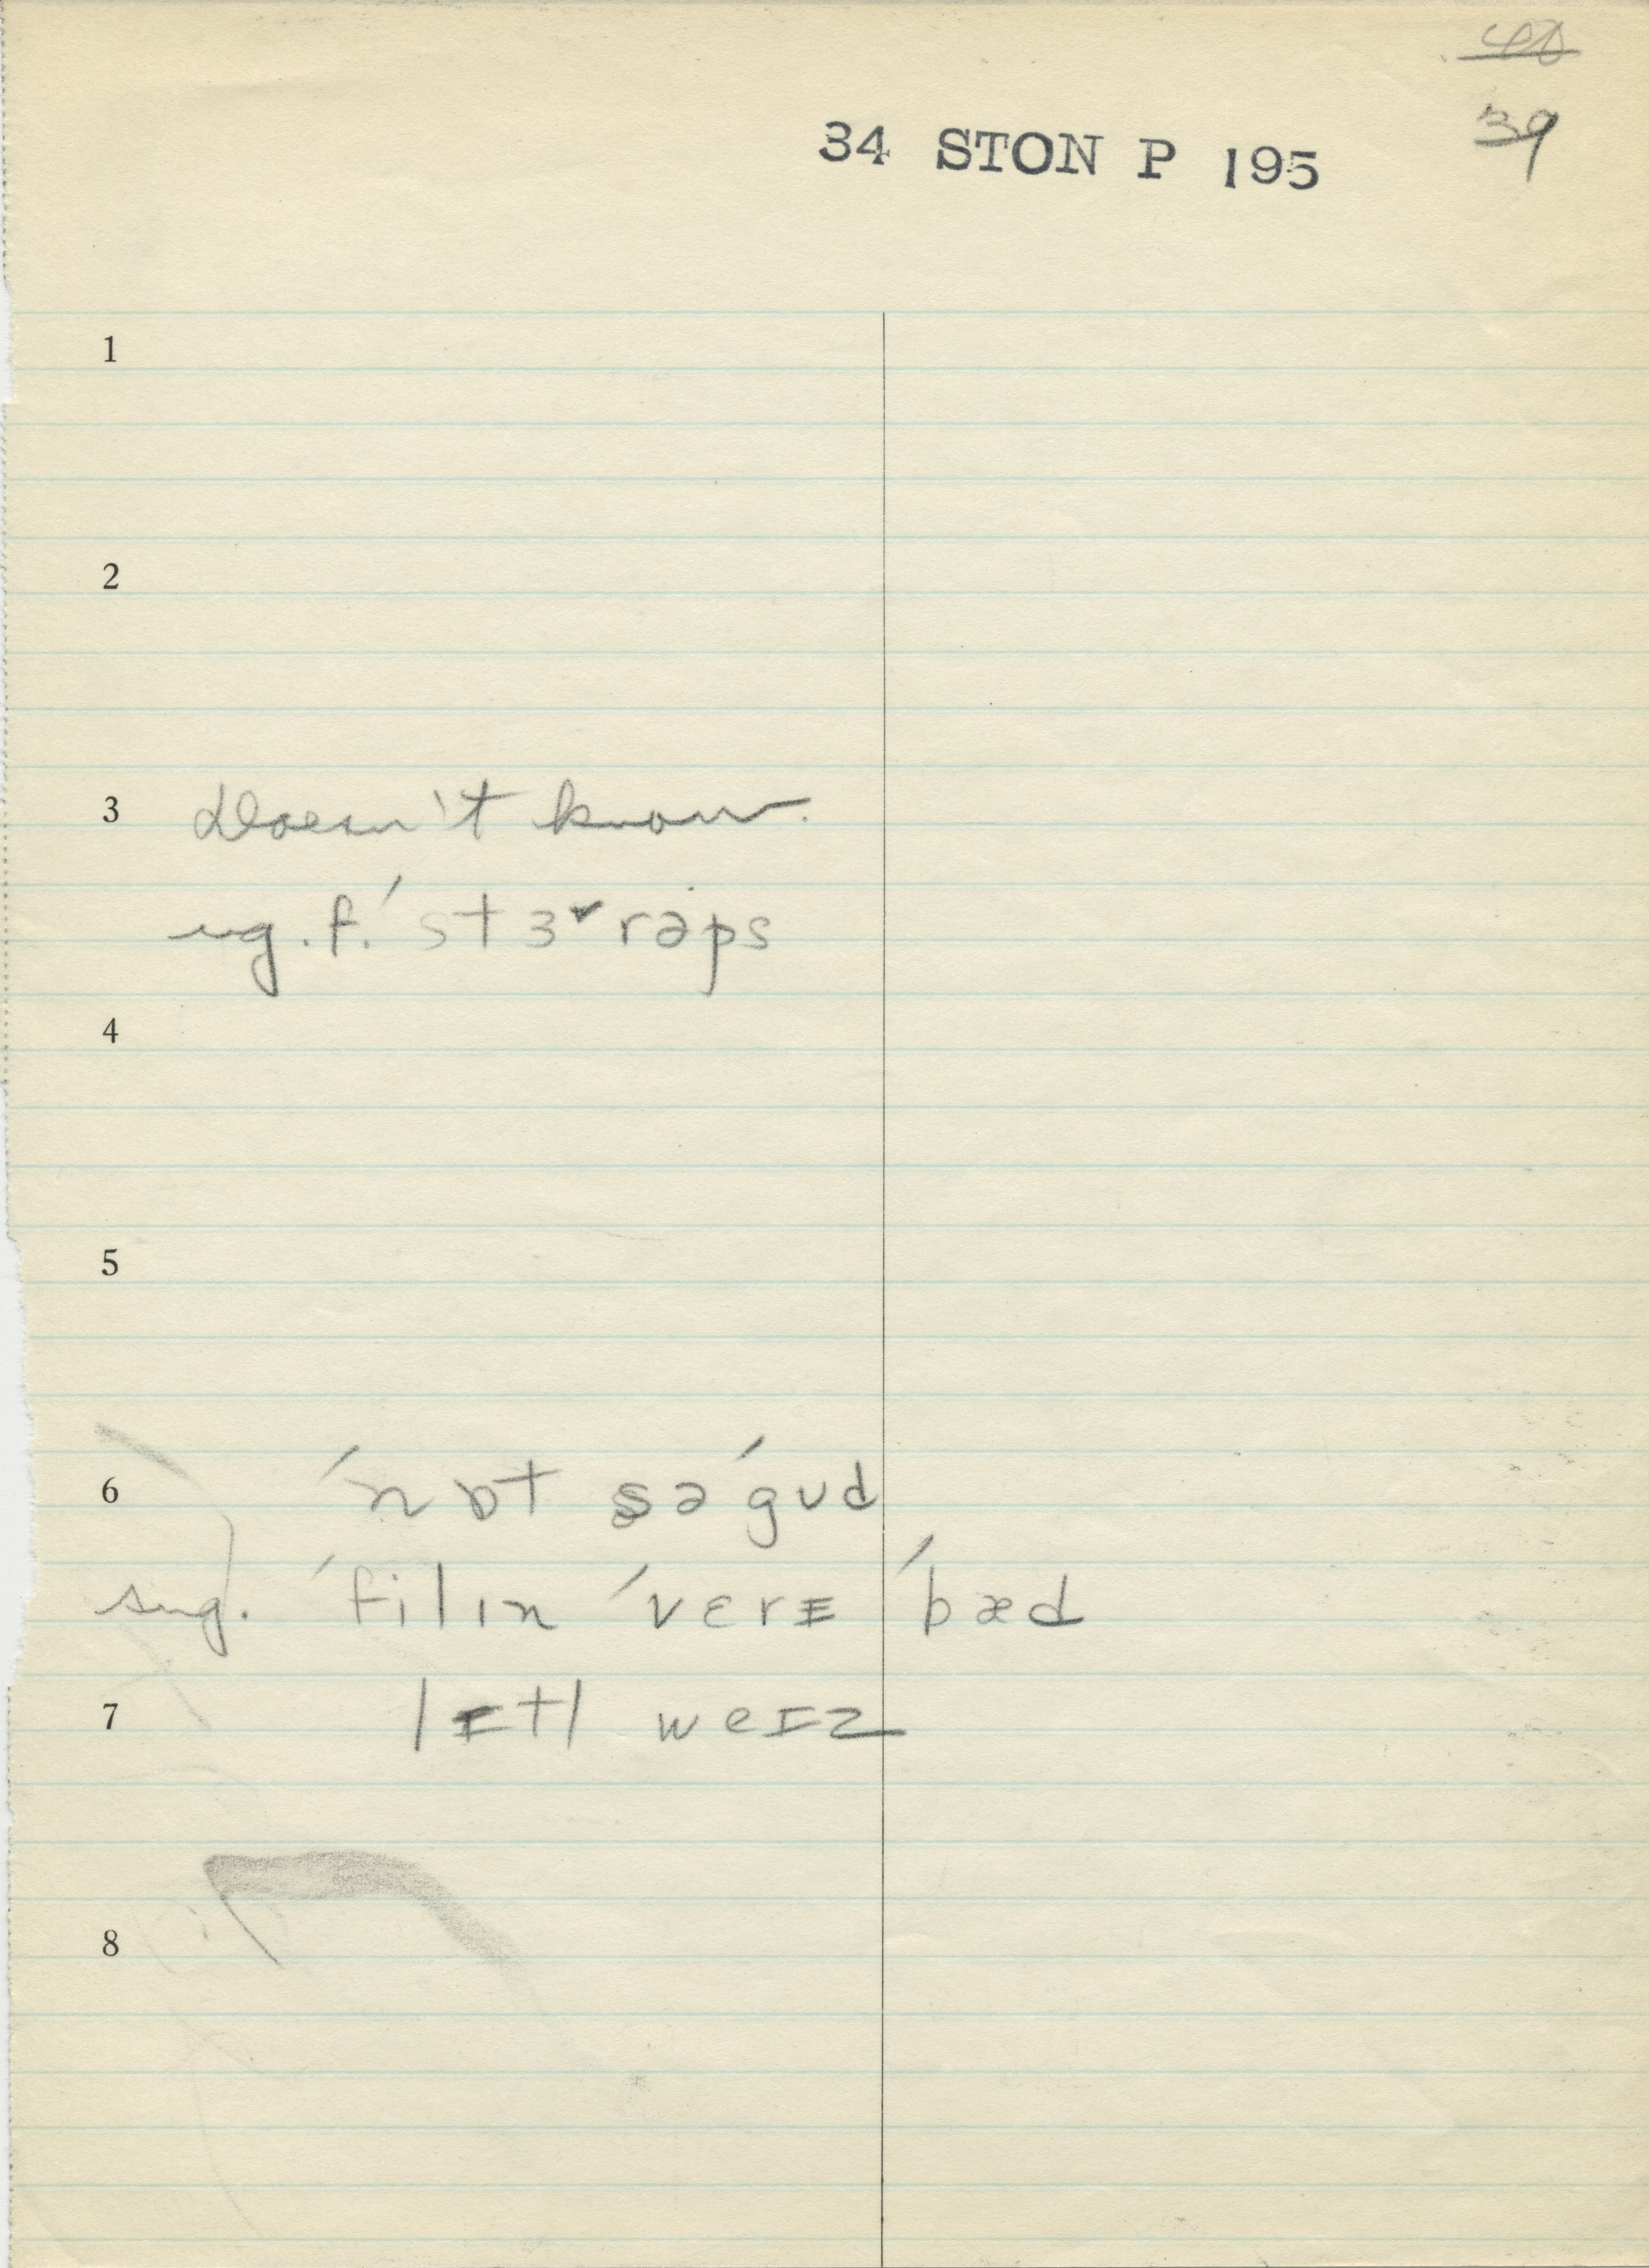 39
34 STON P 195
1
2
3 Doesn't know.
sug. f. ˈstɝrəps
4
5
6 ˈnɒt səˈgʊd
sug. ˈfilɪn ˈvɛrɪ ˈbæd
7 lɪtl weɪz
8